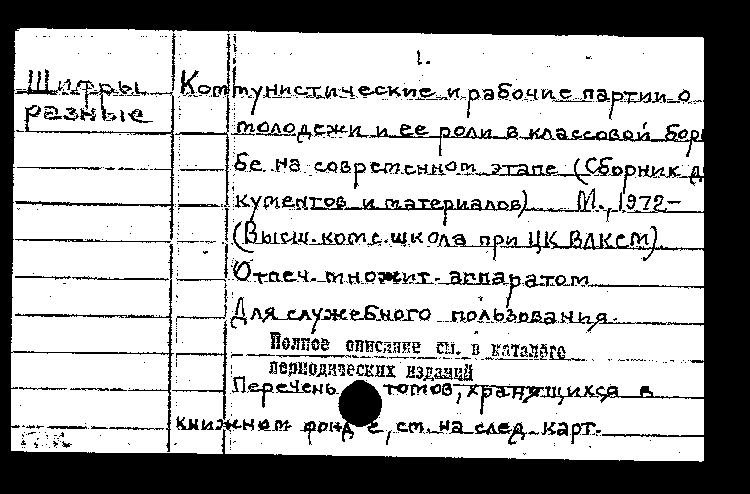 1.
Шифры Коммунистические и рабочие партии о
разные
молодежи и ее роли в классовой борь
бе на современном этапе (Сборник до
кументов и материалов) М., 1972-
(Высш. комс. школа при ЦК ВЛКСМ).
Отпеч. множит. аппаратом
Для служебного пользования.
Полное описание см. в каталоге
периодических изданий
Перечень томов, хранящихся в
книжном фонде, см. на след. карт.